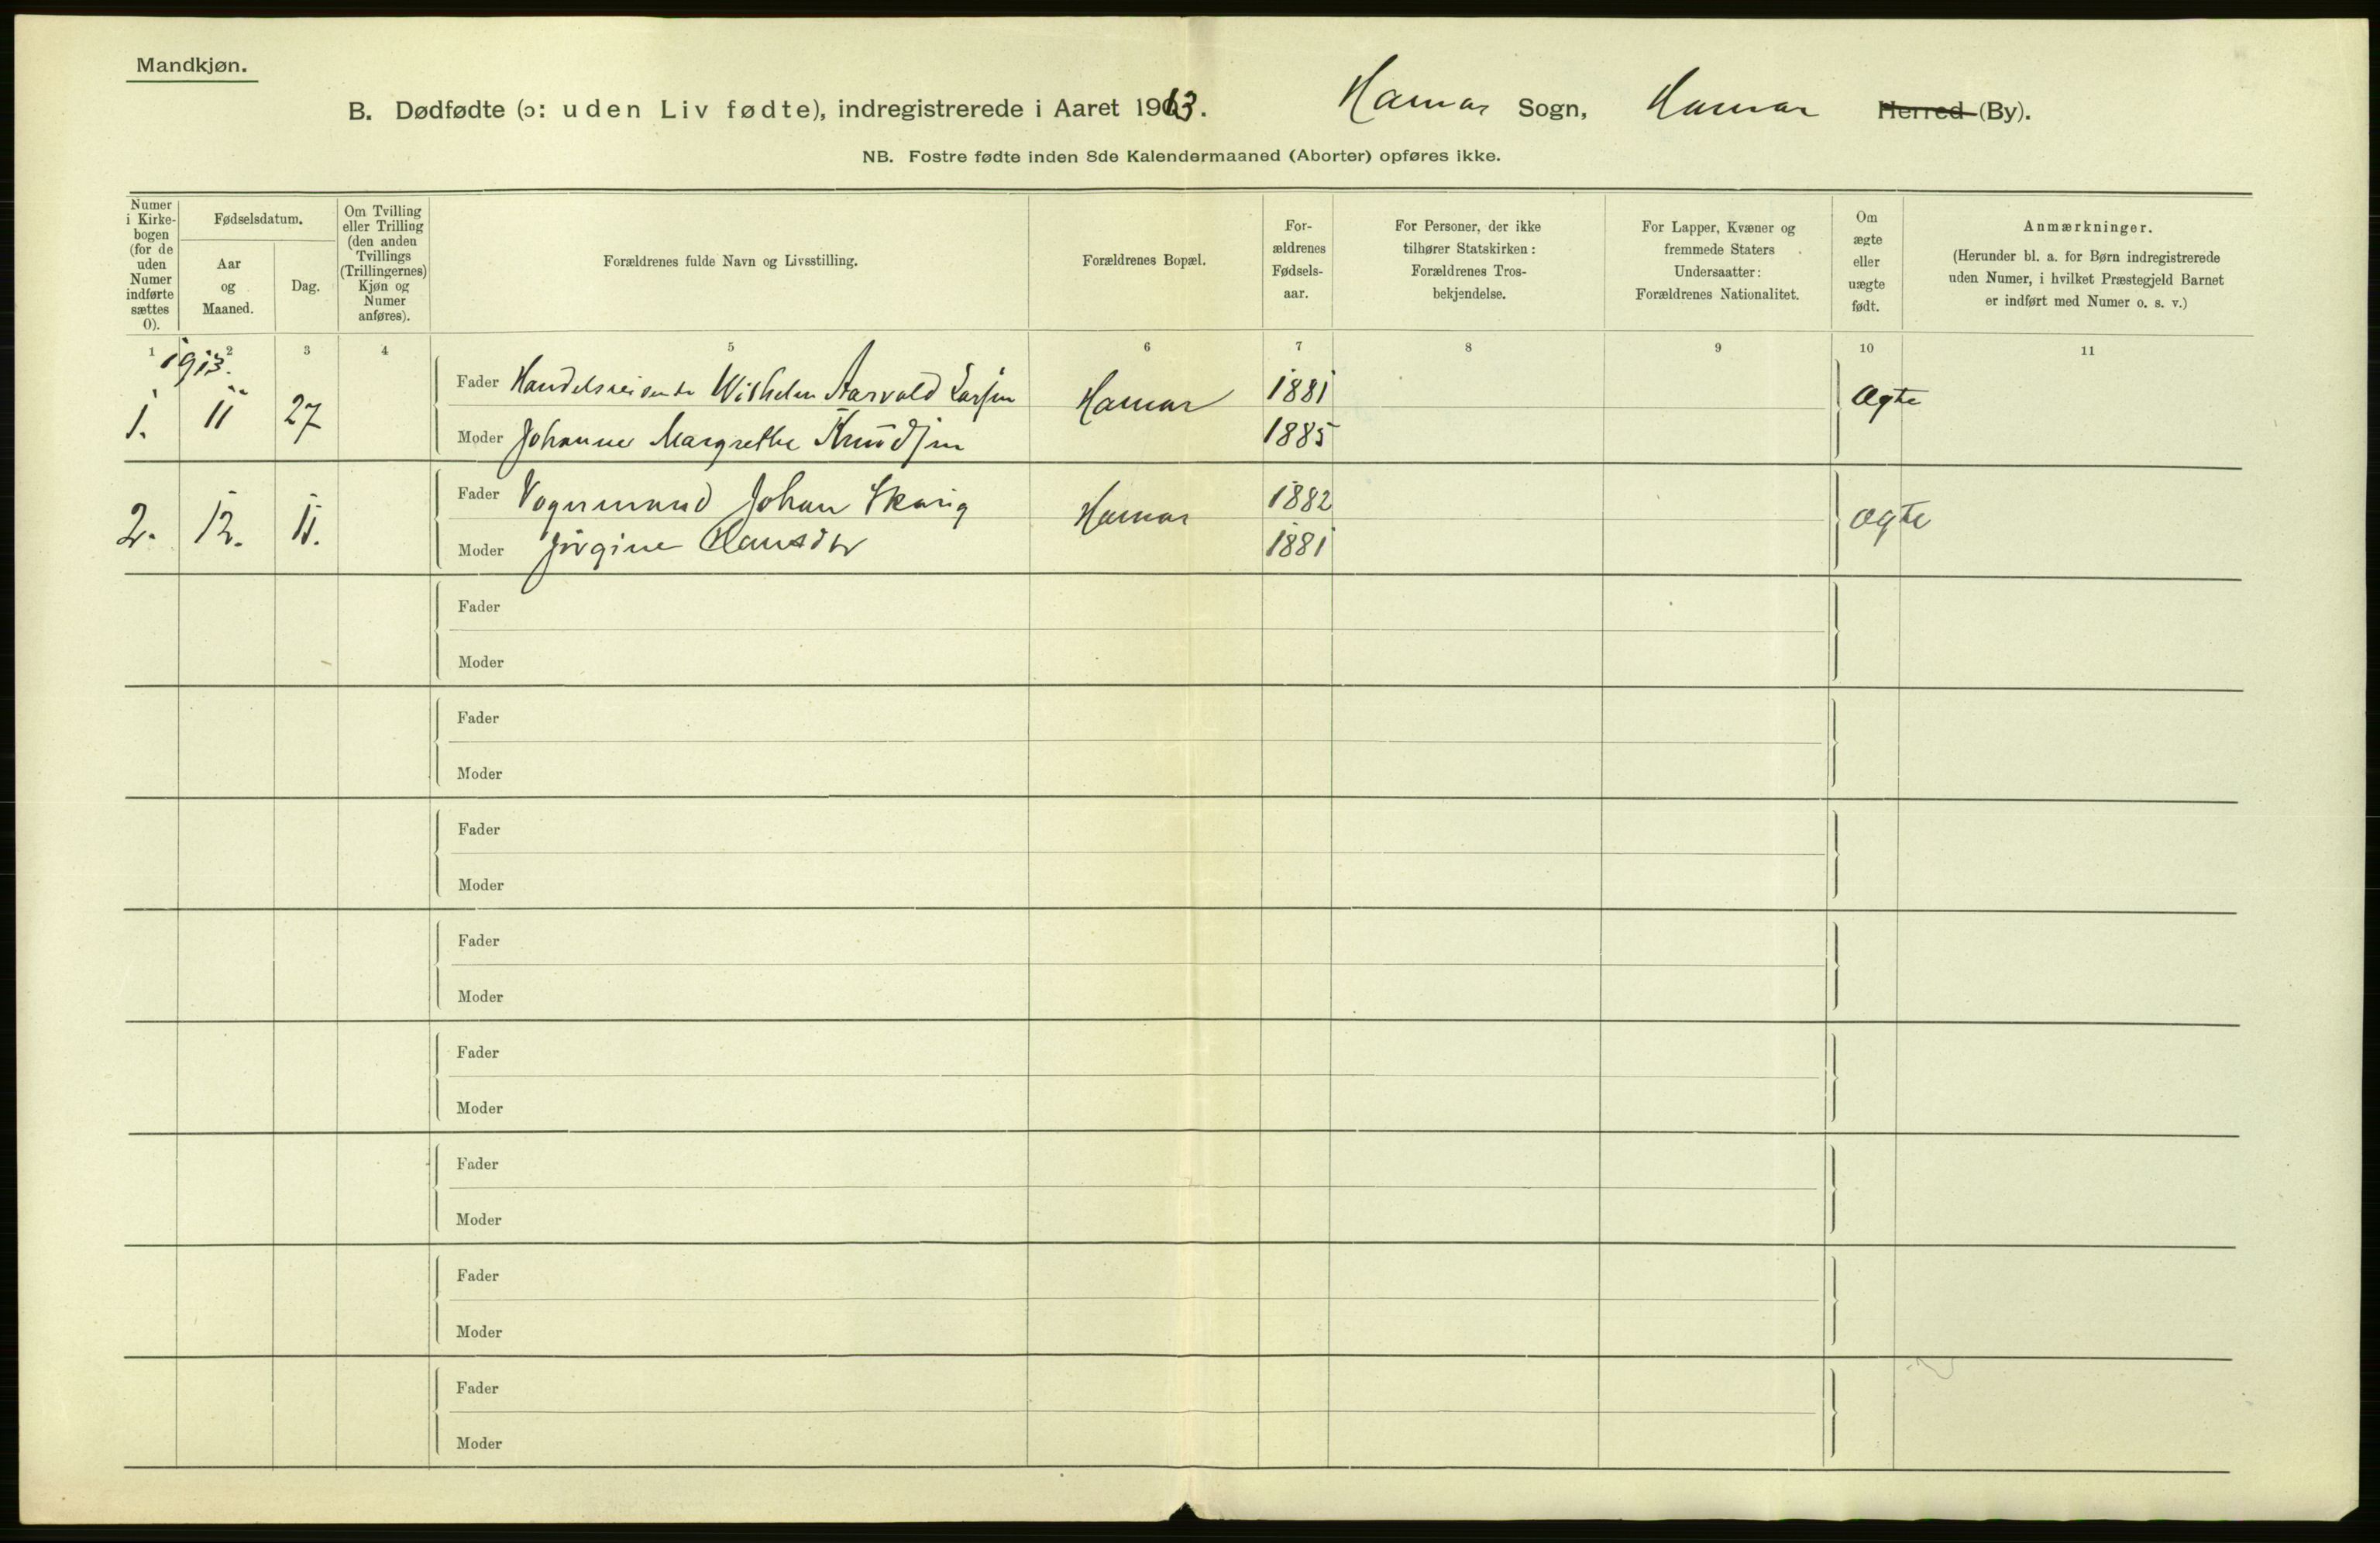 Mandkjøn.
B. Dødfødte (ɔ: uden Liv fødte), indregistrerede i Aaret 1913. Hamar Sogn, Hamar Herred (By).
NB. Fostre fødte inden 8de Kalendermaaned (Aborter) opføres ikke.
Numer i Kirkebogen (for de uden Numer indførte sættes 0).
Fødselsdatum.
Aar og Maaned.
Dag.
Om Tvilling eller Trilling (den anden Tvillings (Trillingernes) Kjøn og Numer anføres).
Forældrenes fulde Navn og Livsstilling.
Forældrenes Bopæl.
Forældrenes Fødselsaar.
For Personer, der ikke tilhører Statskirken: Forældrenes Trosbekjendelse.
For Lapper, Kvæner og fremmede Staters Undersaatter: Forældrenes Nationalitet.
Om ægte eller uægte født.
Anmærkninger.
(Herunder bl. a. for Børn indregistrerede uden Numer, i hvilket Præstegjeld Barnet er indført med Numer o. s. v.)
1 2 3 4 5 6 7 8 9 10 11
1913.
1. 11 27 Fader Handelsreisende Wilhelm Aarvold Larsen Hamar 1881 Ægte
Moder Johanne Margrethe Knudsen 1885
2. 12. 11. Fader Vognmand Johan Skarig Hamar 1882 Ægte
Moder Jørgine Hansdtr 1881
Fader
Moder
Fader
Moder
Fader
Moder
Fader
Moder
Fader
Moder
Fader
Moder
Fader
Moder
Fader
Moder